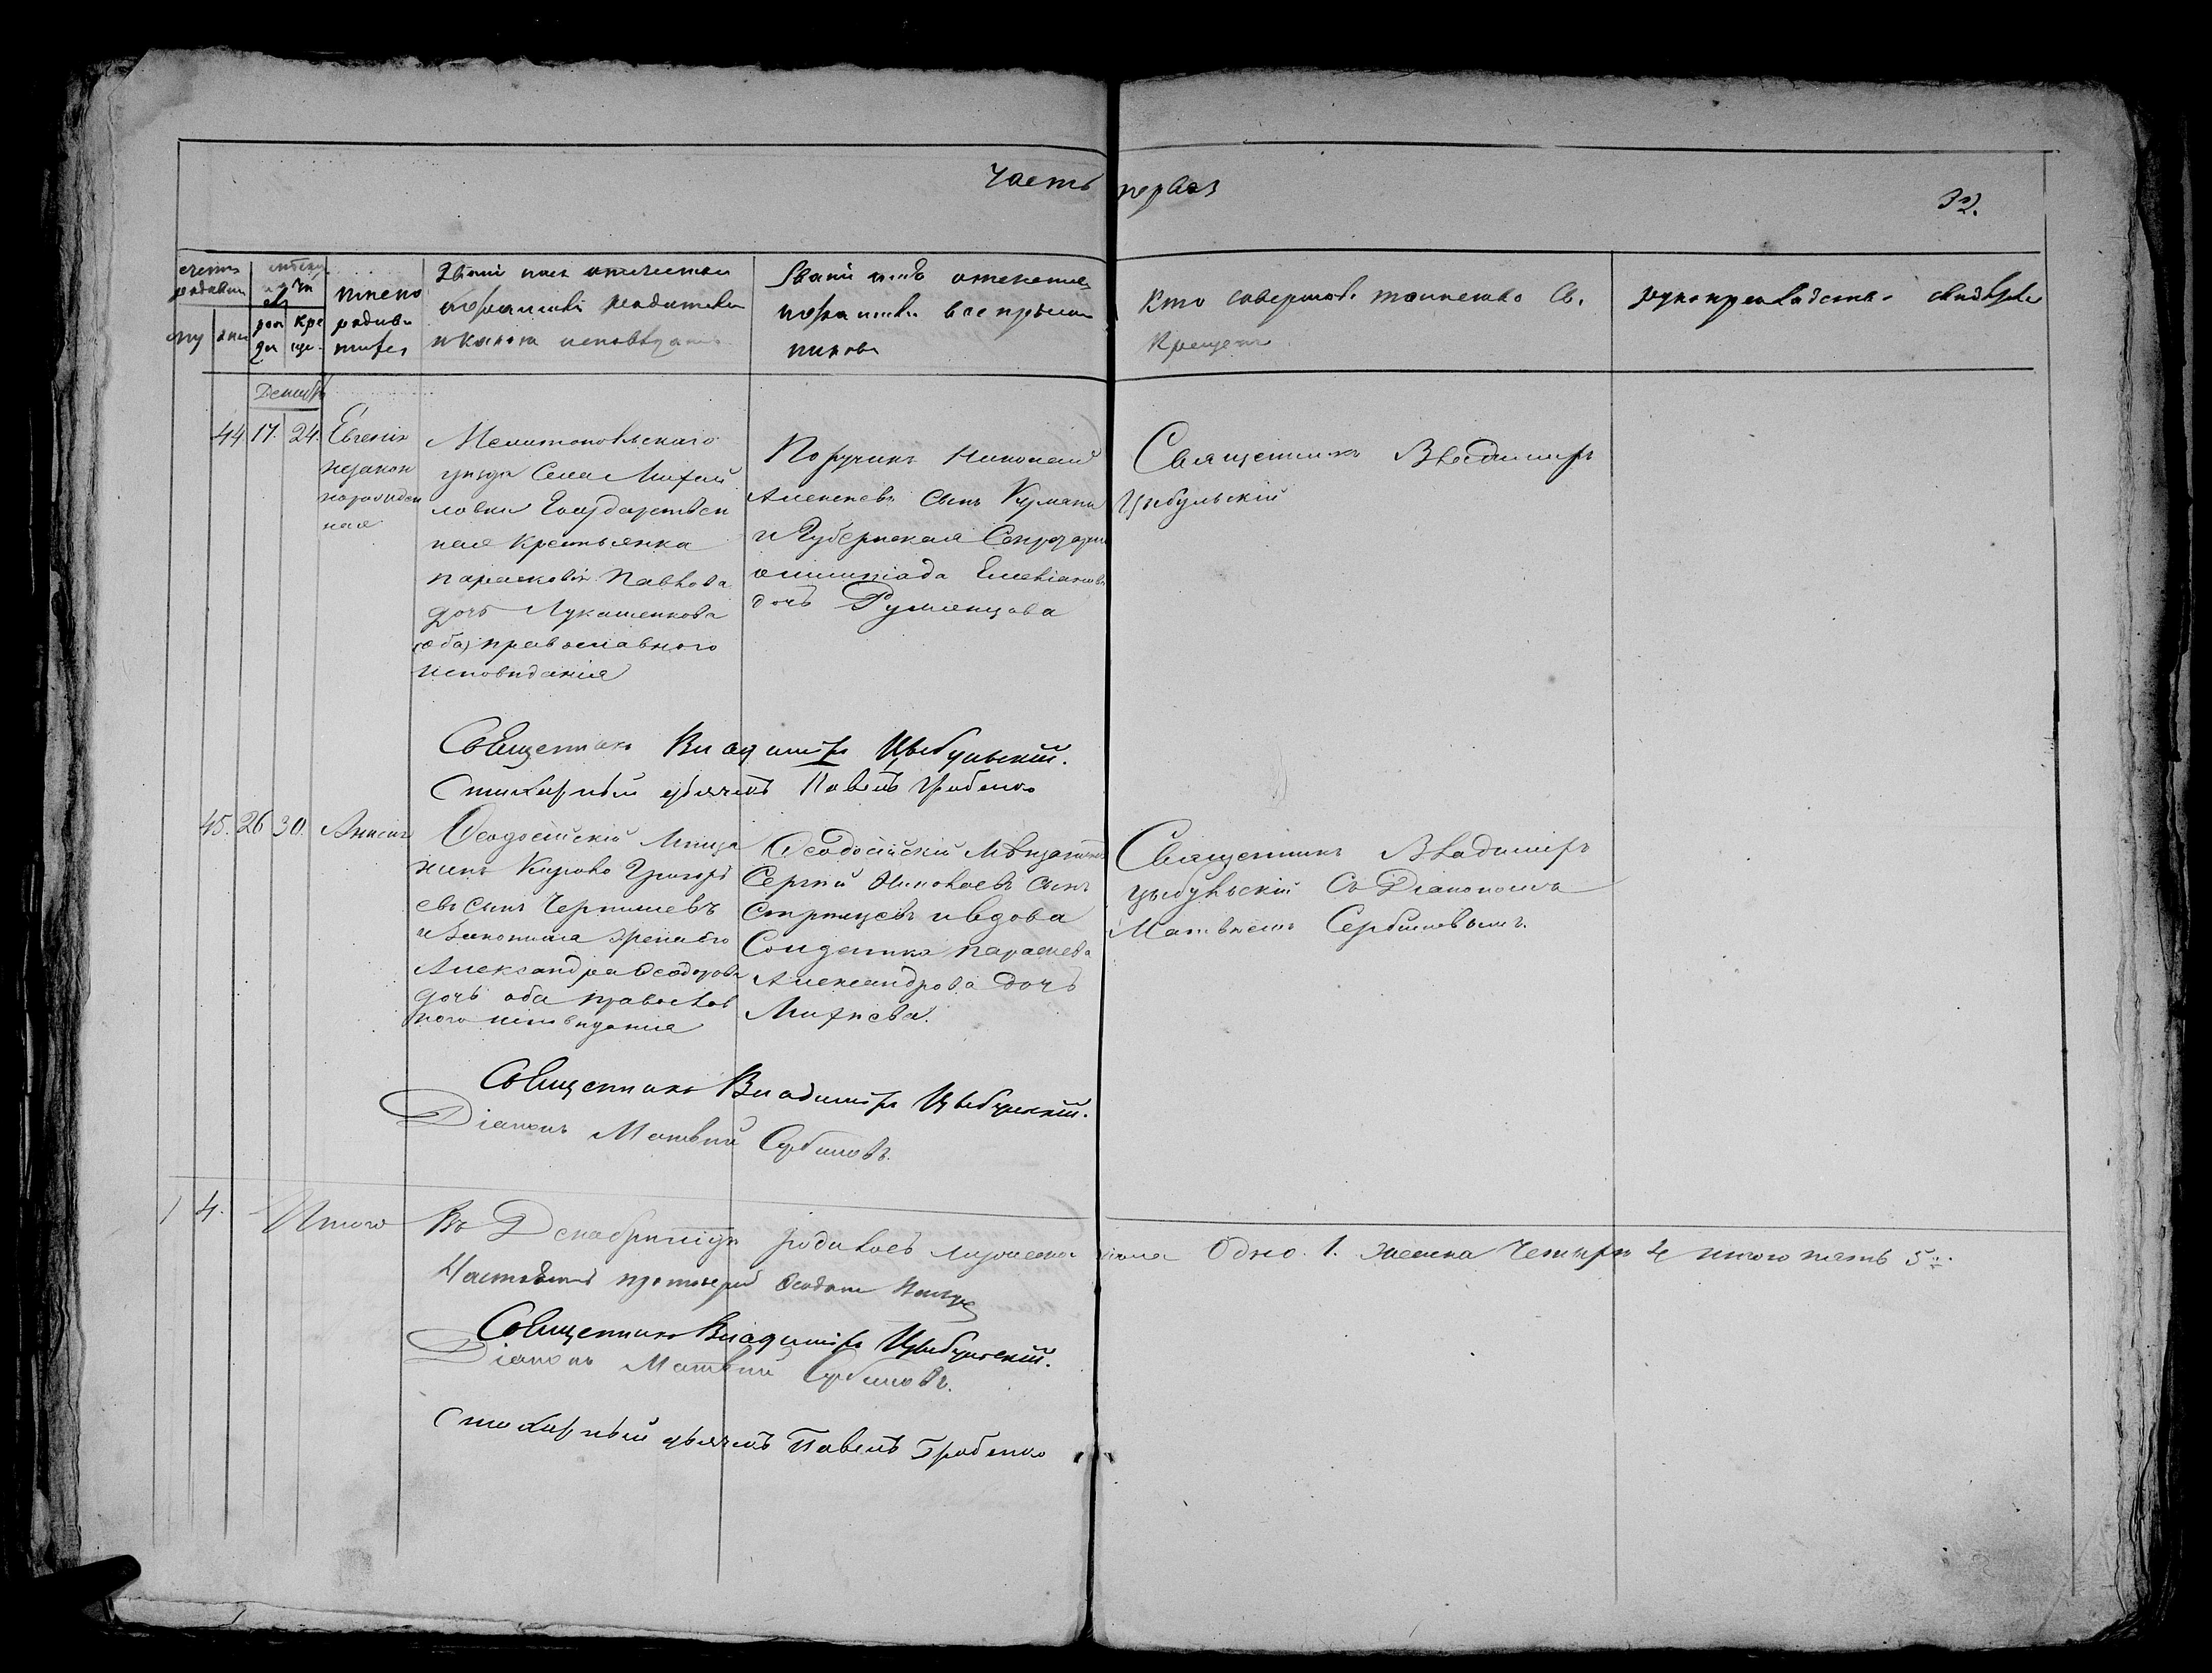 Часть первая
32.
Счетъ родивш
Мѣсяцъ и дни
муж жен
рожд крещ
Имено родившихся
Званіе имя отчество и фамилія родителей и какого исповѣданія
Званіе имя отчество и фамилія воспріемниковъ
Кто совершалъ таинство Св. Крещенія
рукоприкладство свидѣтелей
Декабрь
44 17. 24. Евгенія
незакон
норожден
ная
Мелитопольскаго
уѣзда Села Михай
ловки Государствен
ная Крестьянка
Параскевія Павлова
дочь Лукашенкова
(оба) православного
исповиданія
Поручикъ Николай
Алексеевъ Сынъ
и Губернская Секретарша
Олимпіада
дочь Румянцова
Священникъ Владимиръ
Цыбульскій
Священникъ Владиміръ Цыбульскій.
Стихарный дьячекъ Павелъ Грабенко
45. 26 30. Анисія
Ѳеодосійскій Мѣща
нинъ Григорі
евъ сынъ Чернышевъ
и Законная Жена его
Александра Ѳеодорова
дочь оба православ
ного исповиданія
Ѳеодосійскій Мѣщанинъ
Сергѣй Николаевъ Сынъ
Стрельцовъ и вдова
Солдатка Параскева
Александрова дочь
Михнева.
Священникъ Владимиръ
Цыбульскій Съ Діакономъ
Матвѣемъ Сербиновымъ.
Священникъ Владиміръ Цыбульскій.
Діаконъ Матвѣй Сербиновъ.
1 4. Итого Въ Декабри родилось мужеска пола Одно. 1. женска Четыри 4 итого пять 5.
Настоятель протоіерей
Священникъ Владиміръ Цыбульскій.
Діаконъ Матвѣй Сербиновъ.
Стихарный дьячекъ Павелъ Грабенко